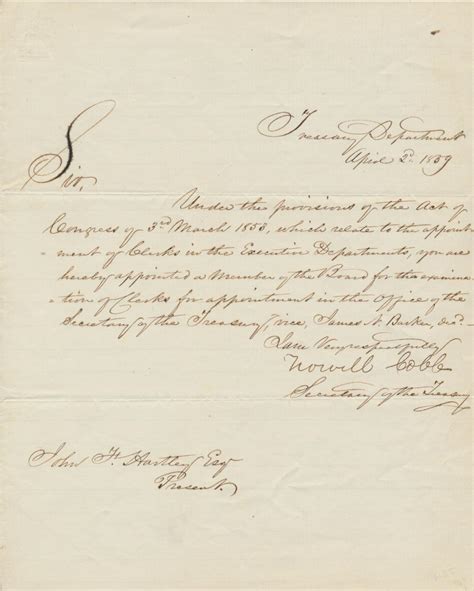 Treasury Department
April 2d. 1859
Sir,
Under the provisions of the Act of
Congress of 3rd March 1853, which relate to the appoint
-ment of Clerks in the Executive Departments, you are
hereby appointed a Member of the Board for the examina
-tion of Clerks for appointment in the Office of the
Secretary of the Treasury, vice, James N. Barker, decd.
I am Very respectfully
Howell Cobb
Secretary of the Treasury
John F. Hartley Esqr
Present.